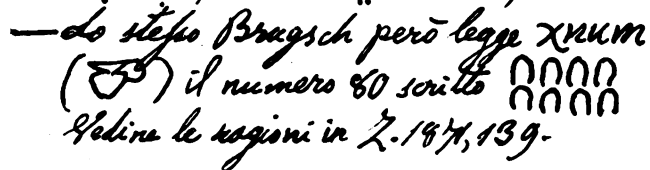 — Lo stesso Brugsch però legge χnum
(𓎸) il numero 80 scritto 𓎍
Vedine le ragioni in Z. 1871, 139.